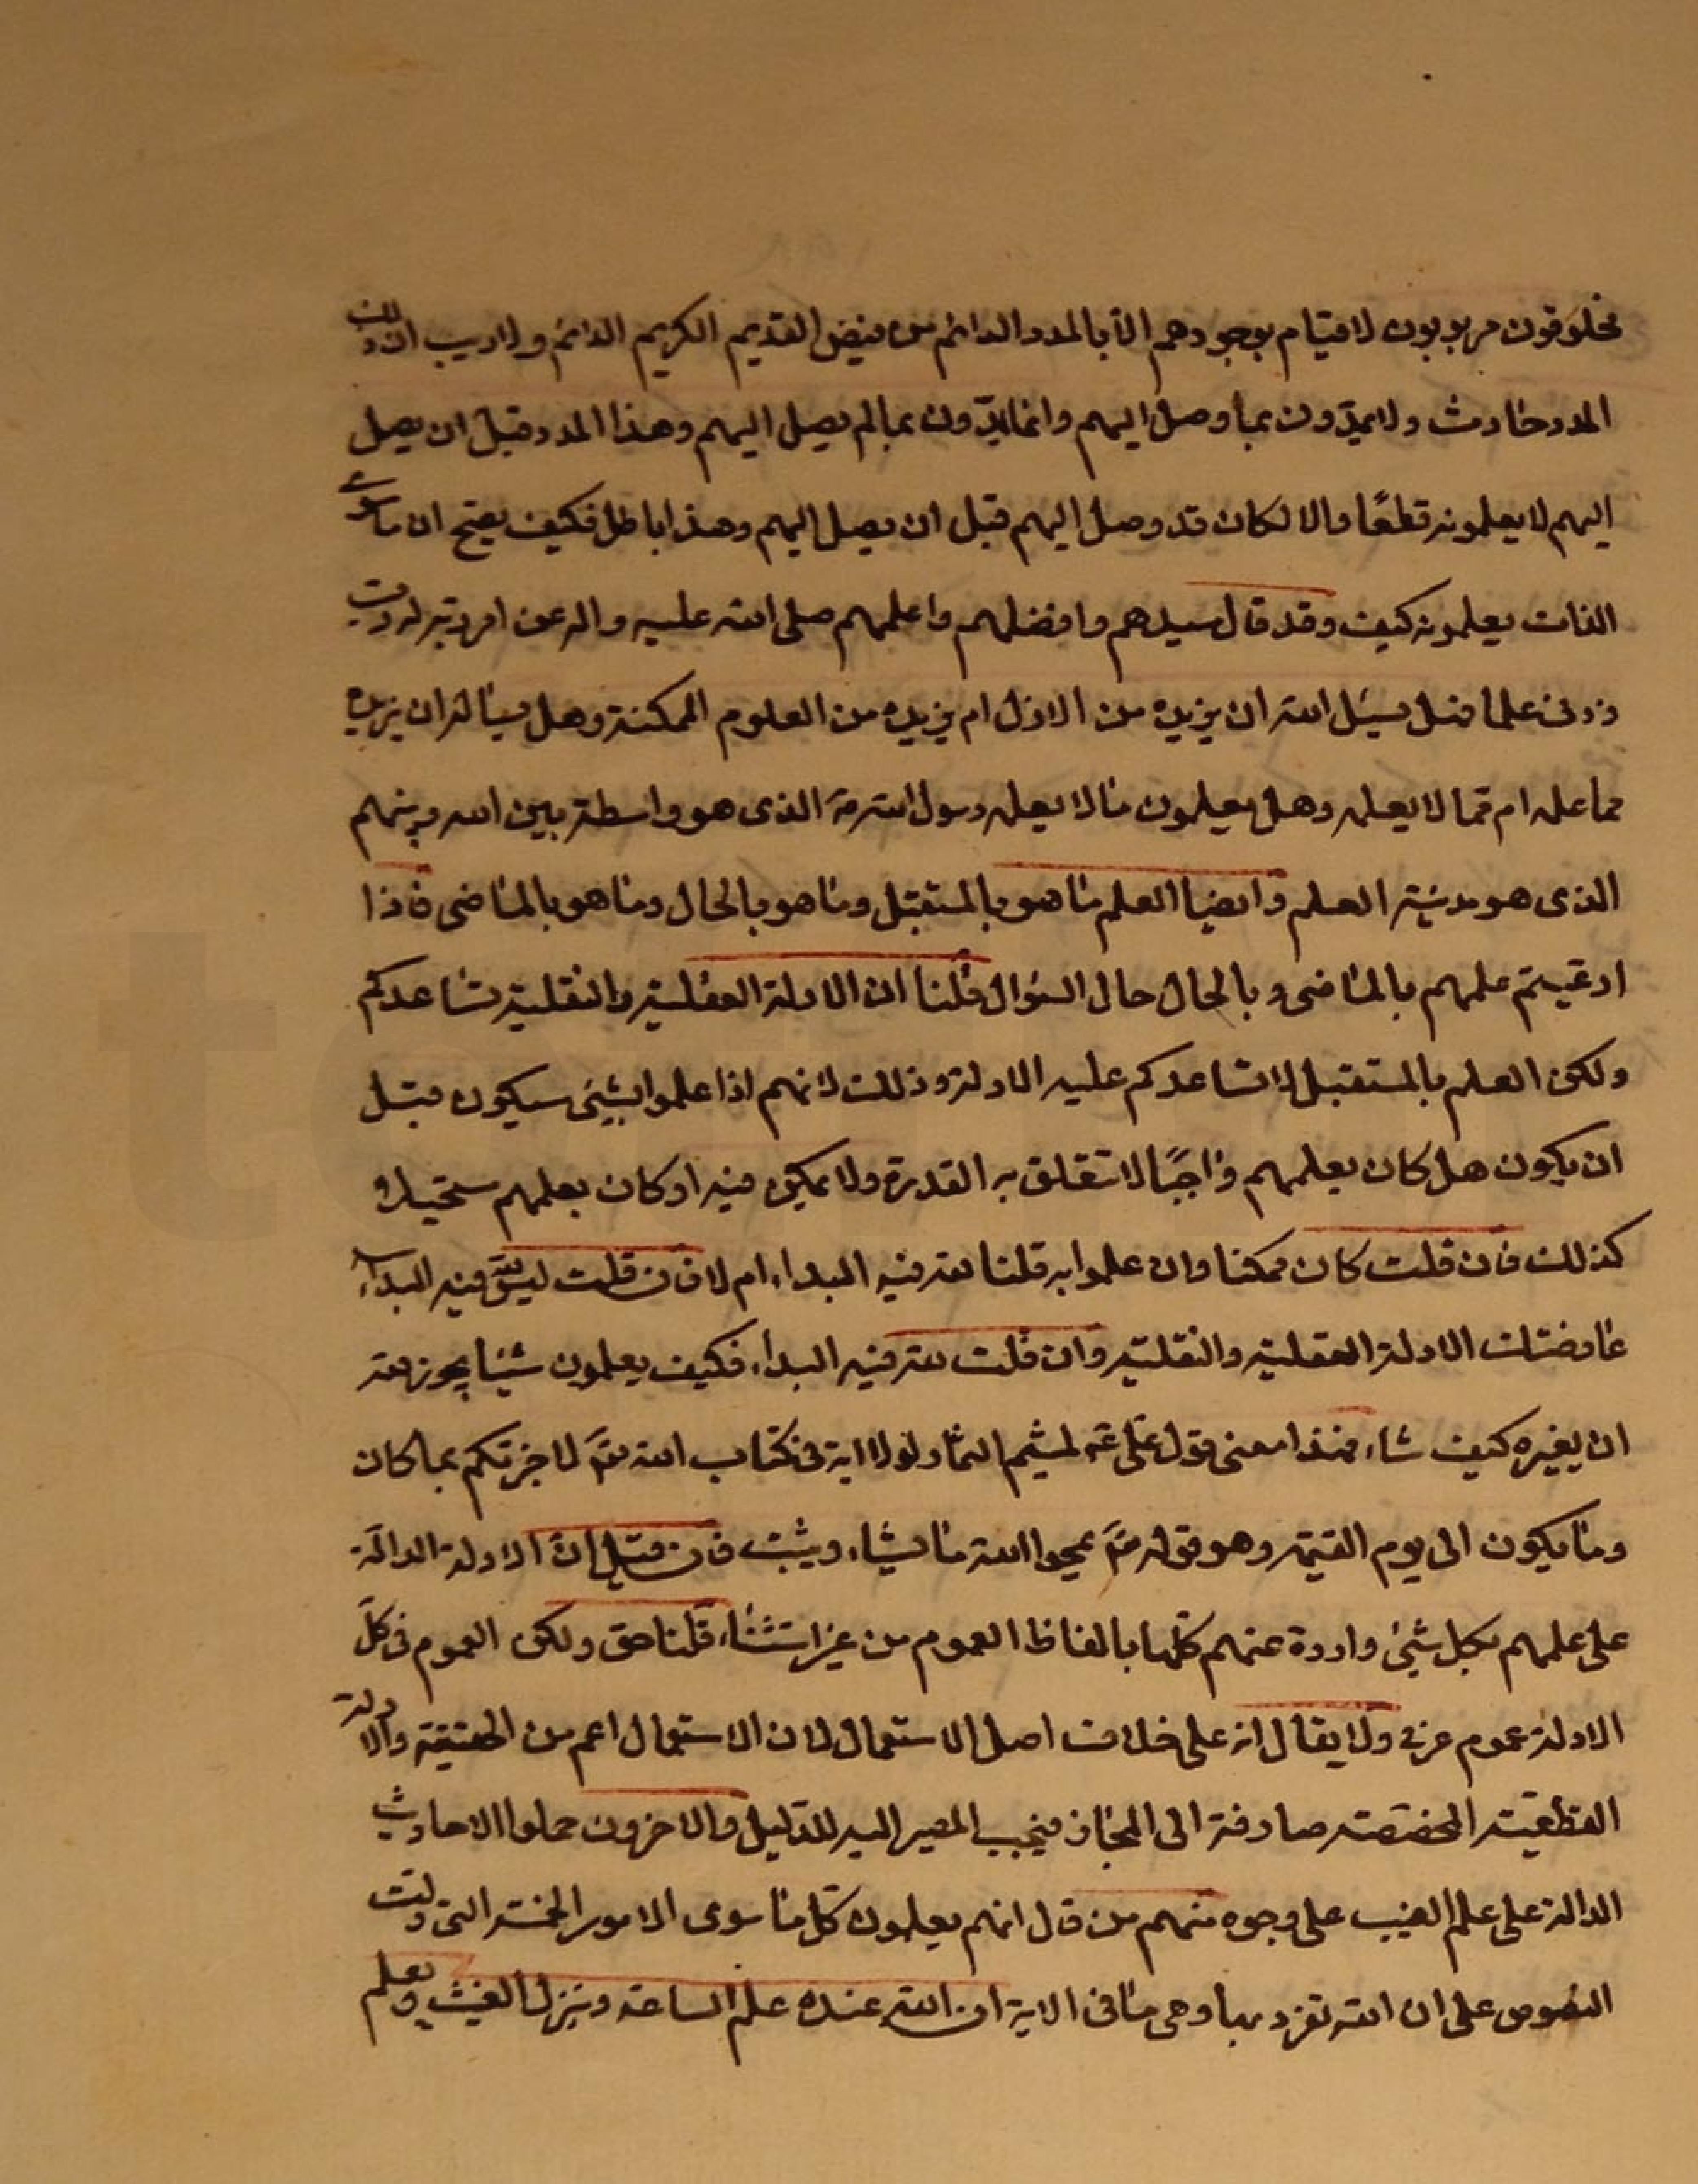 مخلوقون مربوبون لا قيام بوجودهم الا بالمدد الدائم من فيض القديم الكريم الدائم ولا ريب ان ذلك
المدد حادث ولا يمدّون بما وصل اليهم وانما يمدّون بما لم يصل اليهم وهذا المدد قبل ان يصل
اليهم لا يعلمونه قطعًا والا لكان قد وصل اليهم قبل ان يصل اليهم وهذا باطل فكيف يصح ان ما سوى
الذات يعلمونه كيف وقد قال سيدهم وافضلهم واعلمهم صلى الله عليه واله عن امر ربه له رب
زدني علما فهل يسئل الله ان يزيده من الازل ام يزيده من العلوم الممكنة وهل يسأله ان يزيده
مما علمه ام مما لا يعلمه وهل يعلمون ما لا يعلمه رسول الله ص الذى هو واسطة بين الله وبينهم
الذى هو مدينة العلم وايضا العلم ما هو بالمستقبل وما هو بالحال وما هو بالماضى فاذا
ادعيتم علمهم بالماضى وبالحال حال السؤال قلنا ان الادلة العقلية والنقلية تساعدكم
ولكن العلم بالمستقبل لا تساعدكم عليه الادلة وذلك لانهم اذا علموا بشئ سيكون قبل
ان يكون هل كان بعلمهم واجبًا لا تتعلق به القدرة ولا يمكن فيه او كان بعلمهم مستحيلا
كذلك فان قلت كان ممكنا وان علموا به قلنا لله فيه البداء ام لا فان قلت ليس لله فيه البداء
عارضتك الادلة العقلية والنقلية وان قلت لله فيه البداء فكيف يعلمون شيئا يجوز لله
ان يغيره كيف شاء فهذا معنى قول علىّ ع لميثم التمار لولا اية فى كتاب الله لاخبرتكم بما كان
وما يكون الى يوم القيمة وهو قوله يمحوا الله ما يشاء ويثبت فان قيل ان الادلة الدالة
على علمهم بكل شئ واردة عنهم كلها بالفاظ العموم من غير استثناء قلنا حق ولكن العموم فى كلّ
الادلة عموم عرفى ولا يقال انه على خلاف اصل الاستعمال لان الاستعمال اعم من الحقيقة والادلة
القطعية المخصصة صارفة الى المجاز فيجب المصير اليه للدليل والاخرون حملوا الاحاديث
الدالة على علم الغيب على وجوه منهم من قال انهم يعلمون كل ما سوى الامور الخمسة التى دلت
النصوص على ان الله تفرد بها وهى ما فى الاية ان الله عنده علم الساعة وينزل الغيث ويعلم